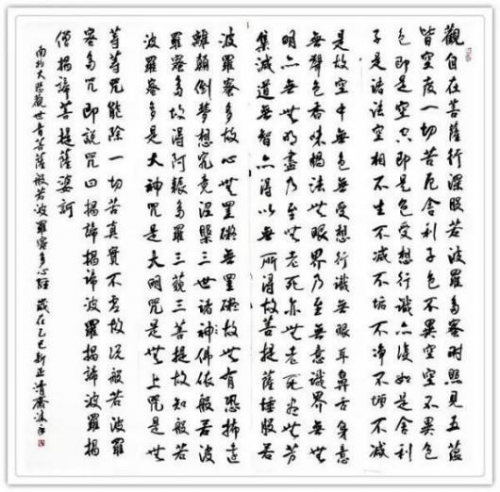 觀自在菩薩行深般若波羅多密時照見五蘊
皆空度一切苦厄舍利子色不異空空不異色
色即是空空即是色受想行識亦復如是舍利
子是法空相不生不减不垢不净不增不减
是故空中無色無受想行識無眼耳鼻舌身意
無聲色香味觸法無眼界乃至無意識界無無
明亦無無明盡乃至無老死亦無老死盡無苦
集滅道無智亦得以無所得故菩提薩埵般若
波羅密多故心無罣礙無罣礙故無有恐怖遠
離顛倒夢想究竟涅槃三世諸神佛依般若波
羅密多故得阿耨多羅三藐三菩提故知般若
波羅密多是大神咒是大明咒是無上咒是無
等等咒能除一切苦真實不虛故説般若波羅
密多咒即説咒曰揭諦揭諦波羅揭諦波羅揭
僧揭諦菩提薩婆訶
南無大悲觀世音菩薩般若波羅密多心經 歲在己巳新正清齋